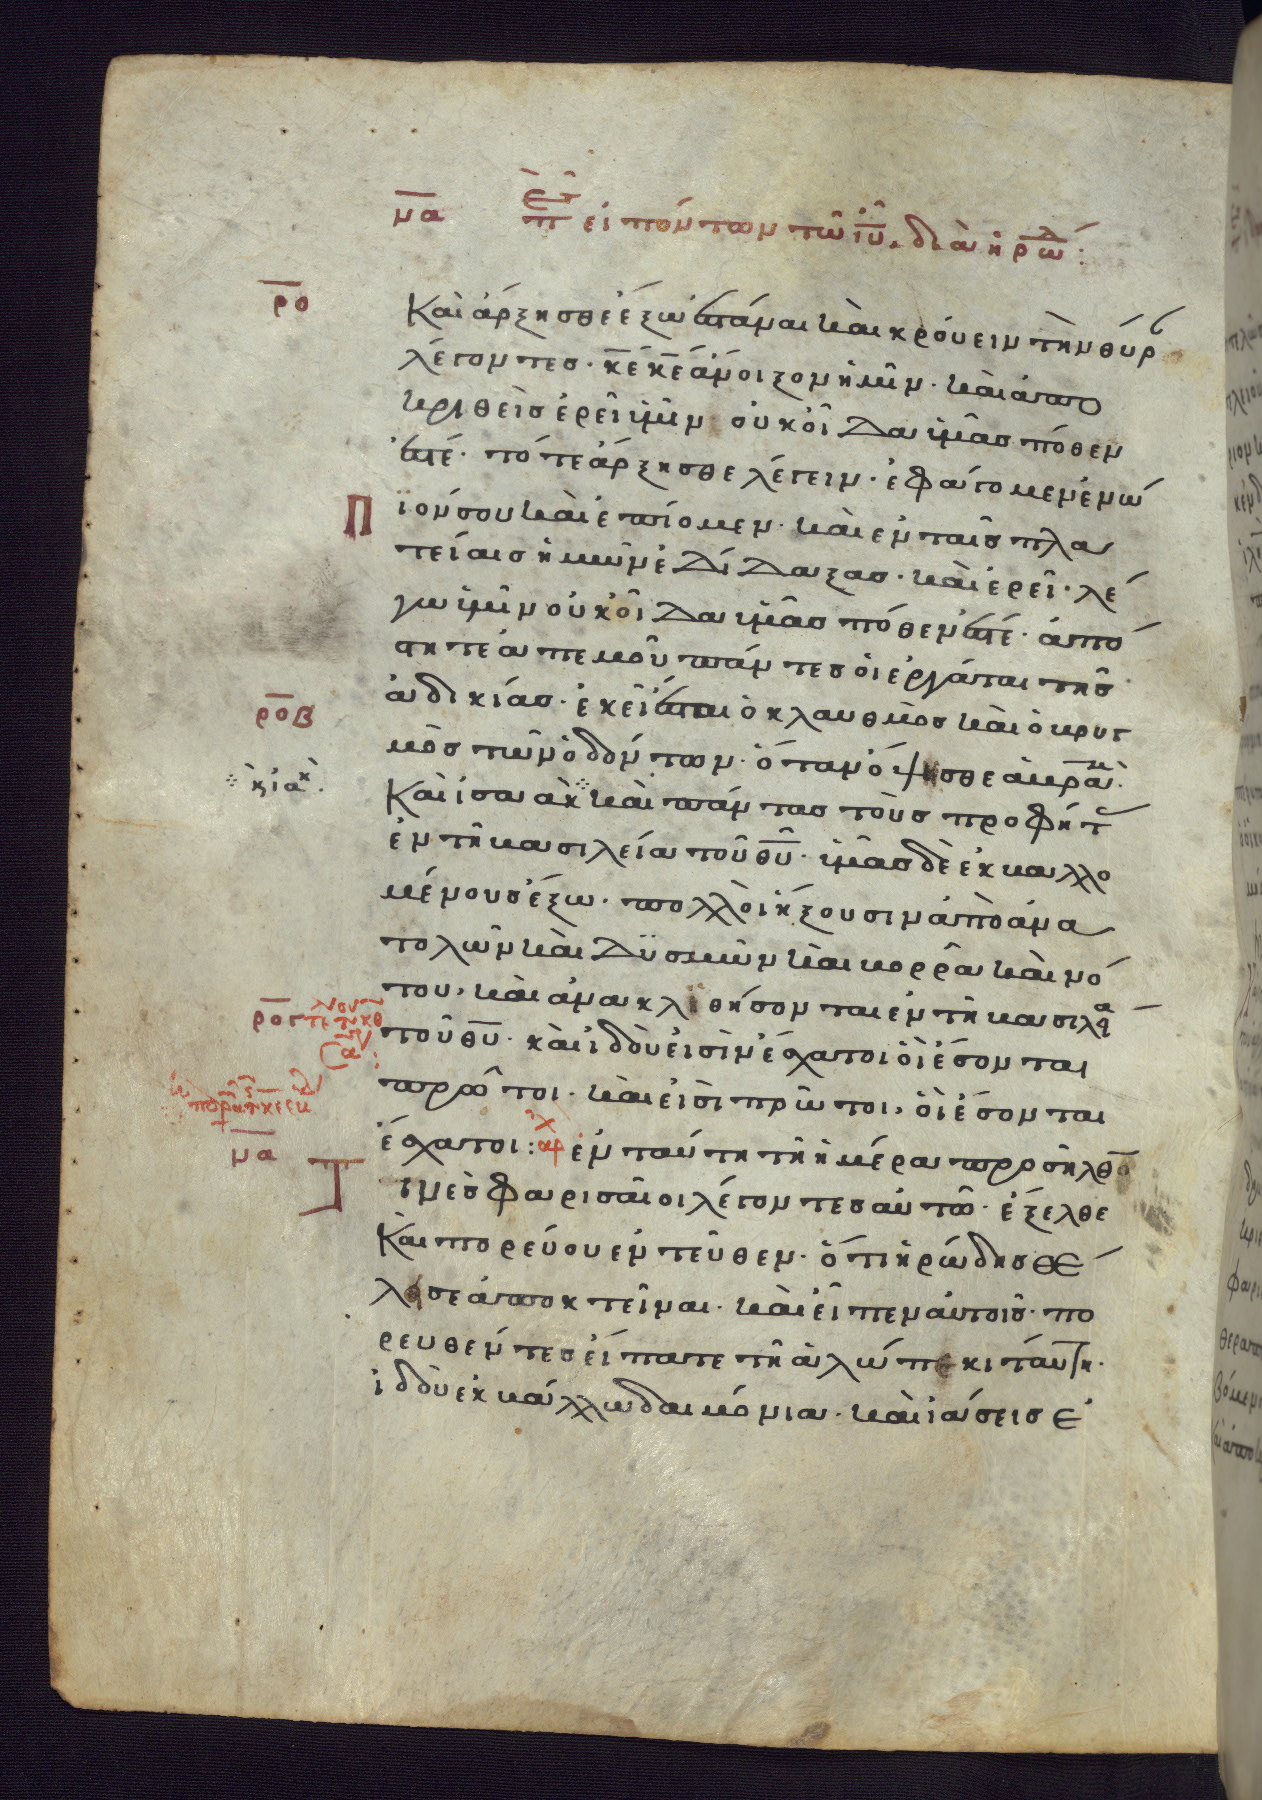 μα περὶ τῶν εἰπόντων τῶ ιυ. διὰ ηρώδ:
ρο
καὶ ἄρξησθε ἔξω ἑστάναι καὶ κρούειν τὴν θύρ
λέγοντες· κε κε ἄνοιξον ἡμῖν· καὶ ἀπο
κριθεὶς ἐρεῖ ὑμῖν οὐκ οἶδα ὑμᾶς πόθεν
ἐστέ· τότε ἄρξησθε λέγειν· ἐφάγομεν ἐνώ
πϊόν σου καὶ ἐπίομεν· καὶ ἐν ταῖς πλα
τείαις ἡμῶν ἐδίδαξας· καὶ ἐρεῖ· λέ
γω ὑμῖν οὐκ οἶδα ὑμᾶς πόθεν ἐστέ· ἀπό
στητε ἀπ' ἐμοῦ πάντες οἱ ἐργάται τῆς
ἀδικίας· ἐκεῖ ἔσται ὁ κλαυθμὸς καὶ ὁ βρυγ
ροβ
μὸς τῶν ὀδόντων· ὅταν ὄψησθε ἀβραὰμ·
κ ἰακ.
καὶ ἰσαὰκ καὶ πάντας τοὺς προφήτ
ἐν τῆ βασιλεία τοῦ θυ· ὑμᾶς δὲ ἐκβαλλο
μένους ἔξω· πολλοὶ ἥξουσιν ἀπὸ ἀνα
τολῶν καὶ δϋσμῶν καὶ βορρᾶ καὶ νό
του, καὶ ἀνακλϊθήσονται ἐν τῆ βασιλεία
ρογ
τοῦ θυ· καὶ ἰδοὺ εἰσὶν ἔσχατοι οἳ ἔσονται
πρῶτοι· καὶ εἰσὶ πρῶτοι, οἳ ἔσονται
ἔσχατοι: αρχ ἐν ταύτη τῆ ἡμέρα προσῆλθο
μα
τινὲς φαρισαῖοι λέγοντες αὐτῶ· ἔξελθε
καὶ πορεύου ἐντεῦθεν· ὅτι ἡρώδης θέ
λει σε ἀποκτεῖναι· καὶ εἶπεν αὐτοῖς· πο
ρευθέντες εἴπατε τῆ ἀλώπεκι ταύτη·
ἰδοὺ ἐκβάλλω δαιμόνια· καὶ ἰάσεις ἐ